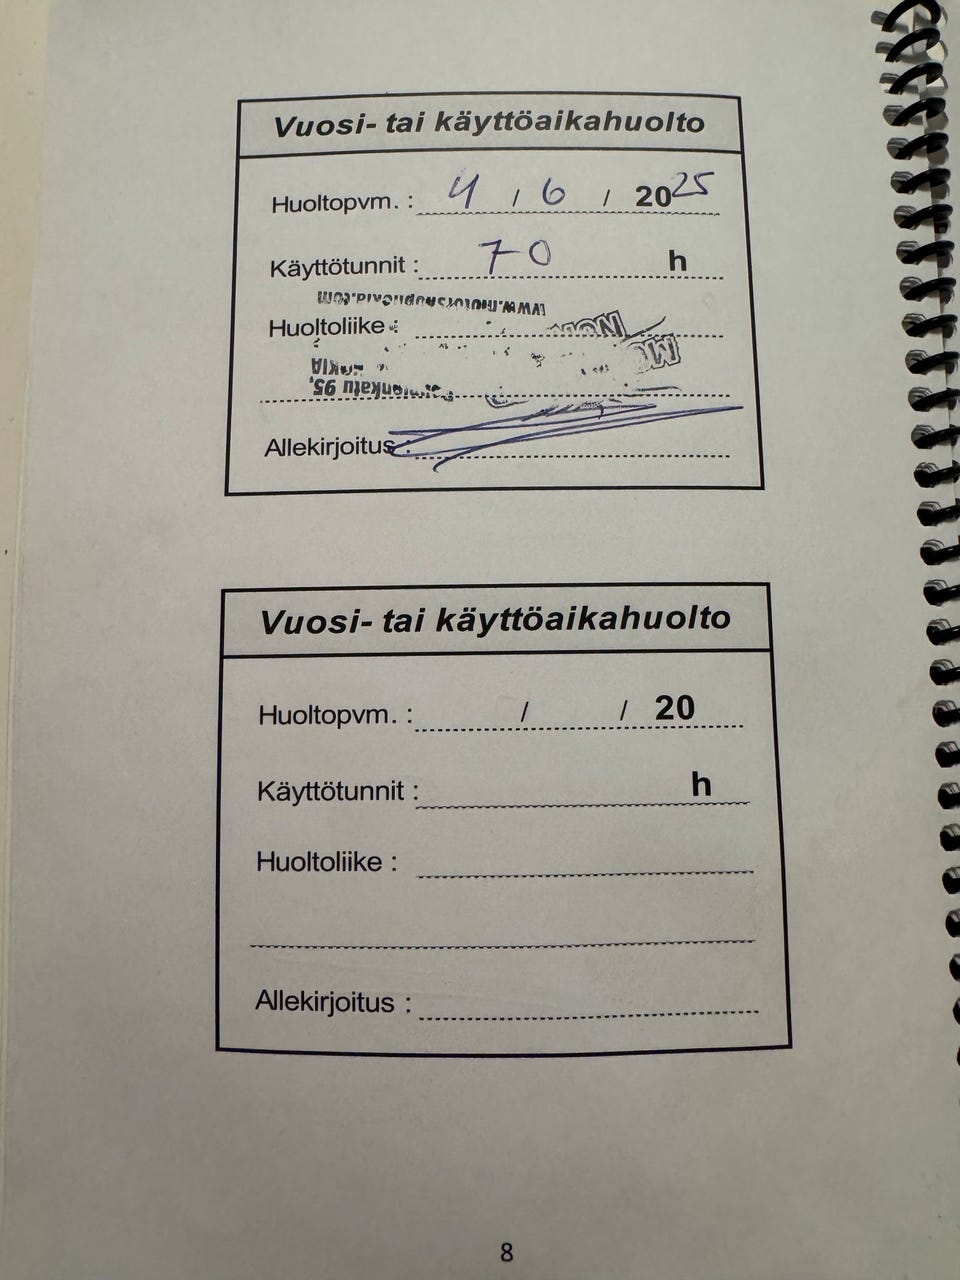 Vuosi- tai käyttöaikahuolto
Huoltopvm. : 4 / 6 / 2025
Käyttötunnit : 70 h
Huoltoliike :
95,
Allekirjoitus :
Vuosi- tai käyttöaikahuolto
Huoltopvm. : / / 20
Käyttötunnit : h
Huoltoliike :
Allekirjoitus :
8